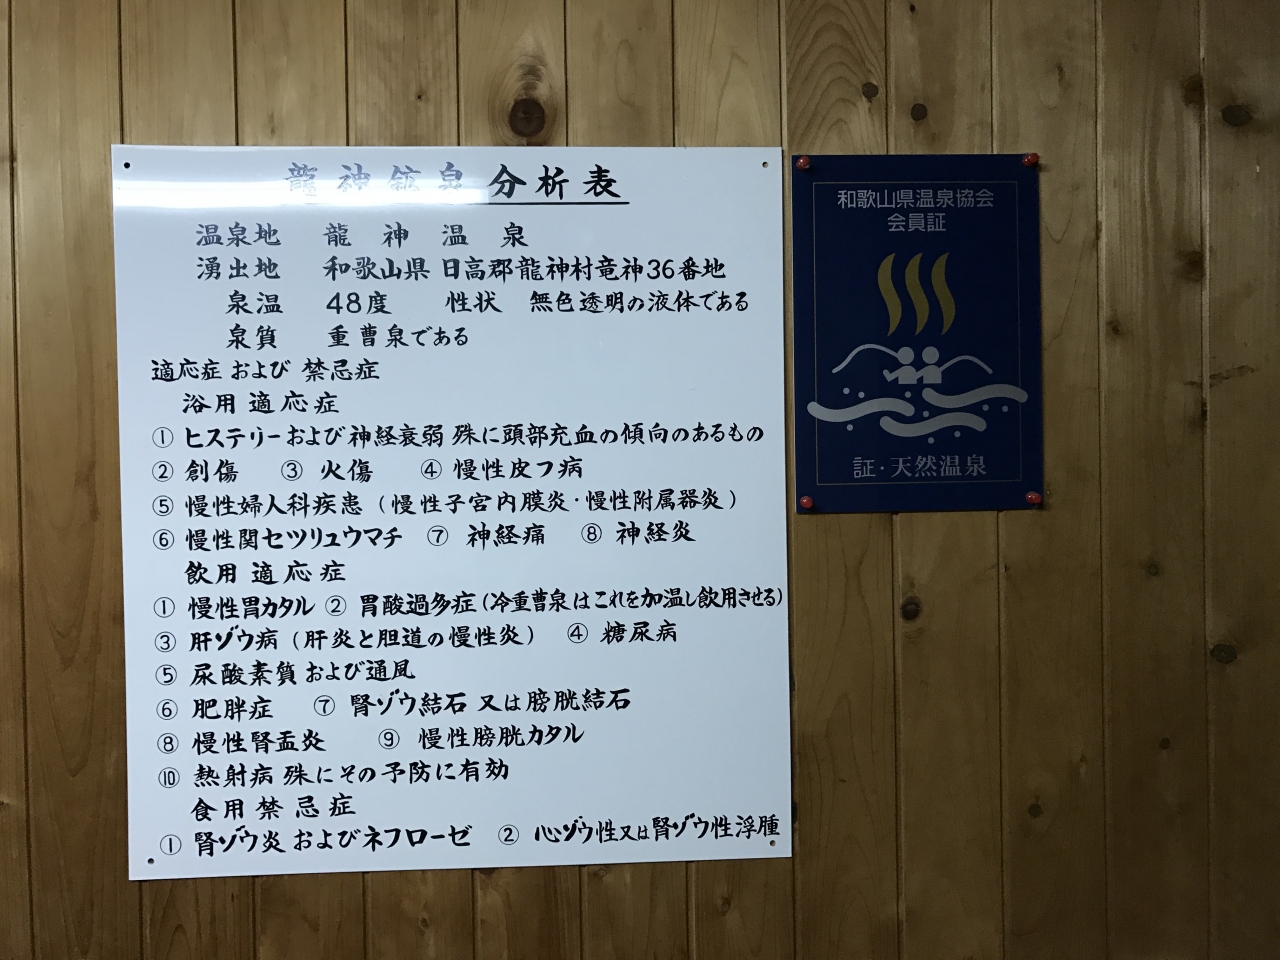 龍神鉱泉分析表
温泉地 龍神温泉
湧出地 和歌山県日高郡龍神村竜神36番地
泉温 48度 性状 無色透明の液体である
泉質 重曹泉である
適応症および禁忌症
浴用適応症
① ヒステリーおよび神経衰弱 殊に頭部充血の傾向のあるもの
② 創傷 ③ 火傷 ④ 慢性皮フ病
⑤ 慢性婦人科疾患（慢性子宮内膜炎・慢性附属器炎）
⑥ 慢性関セツリュウマチ ⑦ 神経痛 ⑧ 神経炎
飲用適応症
① 慢性胃カタル ② 胃酸過多症（冷重曹泉はこれを加温し飲用させる）
③ 肝ゾウ病（肝炎と胆道の慢性炎） ④ 糖尿病
⑤ 尿酸素質および通風
⑥ 肥胖症 ⑦ 腎ゾウ結石又は膀胱結石
⑧ 慢性腎盂炎 ⑨ 慢性膀胱カタル
⑩ 熱射病 殊にその予防に有効
食用禁忌症
① 腎ゾウ炎およびネフローゼ ② 心ゾウ性又は腎ゾウ性浮腫
和歌山県温泉協会
会員証
証・天然温泉